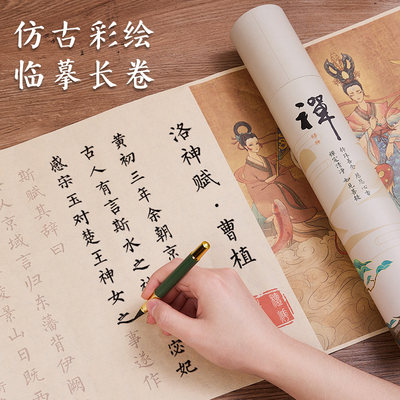 仿古彩绘
临摹长卷
洛神赋·曹植
黄初三年余朝京
古人有言斯水之
宓妃
感宋玉对楚王神女之
事遂作
斯赋其辞曰
京域言归东藩背伊阙
景山日既西
禪